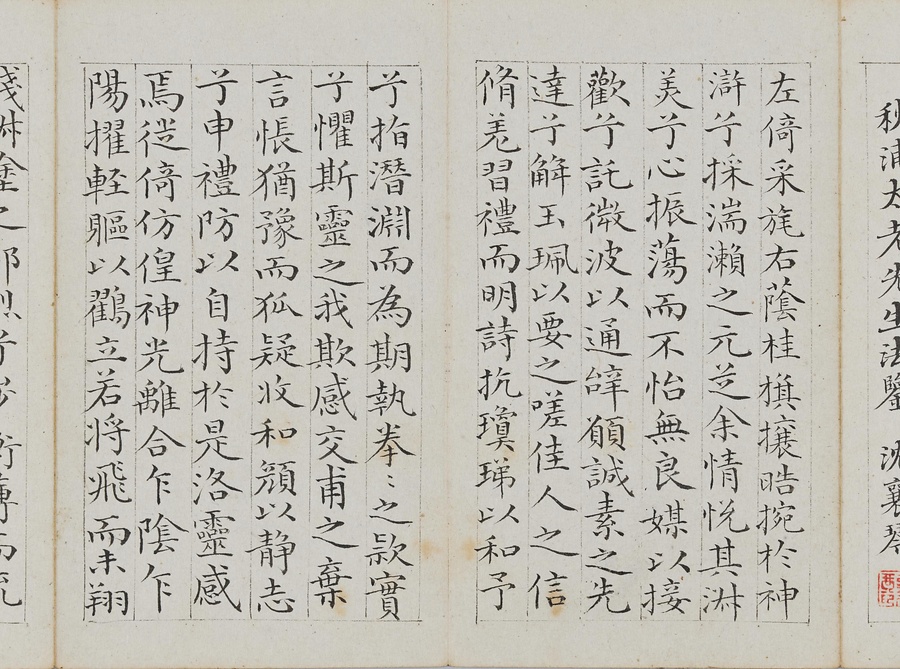 秋浦太老先生法鑒 沈襄琴
左倚采旄右蔭桂旗攘晧捥於神
滸兮採湍瀨之元芝余情悅其淑
美兮心振蕩而不怡無良媒以接
歡兮託微波以通辭願誠素之先
達兮解玉珮以要之嗟佳人之信
脩羌習禮而明詩抗瓊珶以和予
兮指潛淵而為期執拳〻之款實
兮懼斯靈之我欺感交甫之棄
言悵猶豫而狐疑收和顏以静志
兮申禮防以自持於是洛靈感
焉徙倚仿偟神光離合乍陰乍
陽擢軽軀以鸛立若將飛而未翔
踐椒塗之郁烈兮步衡薄而流